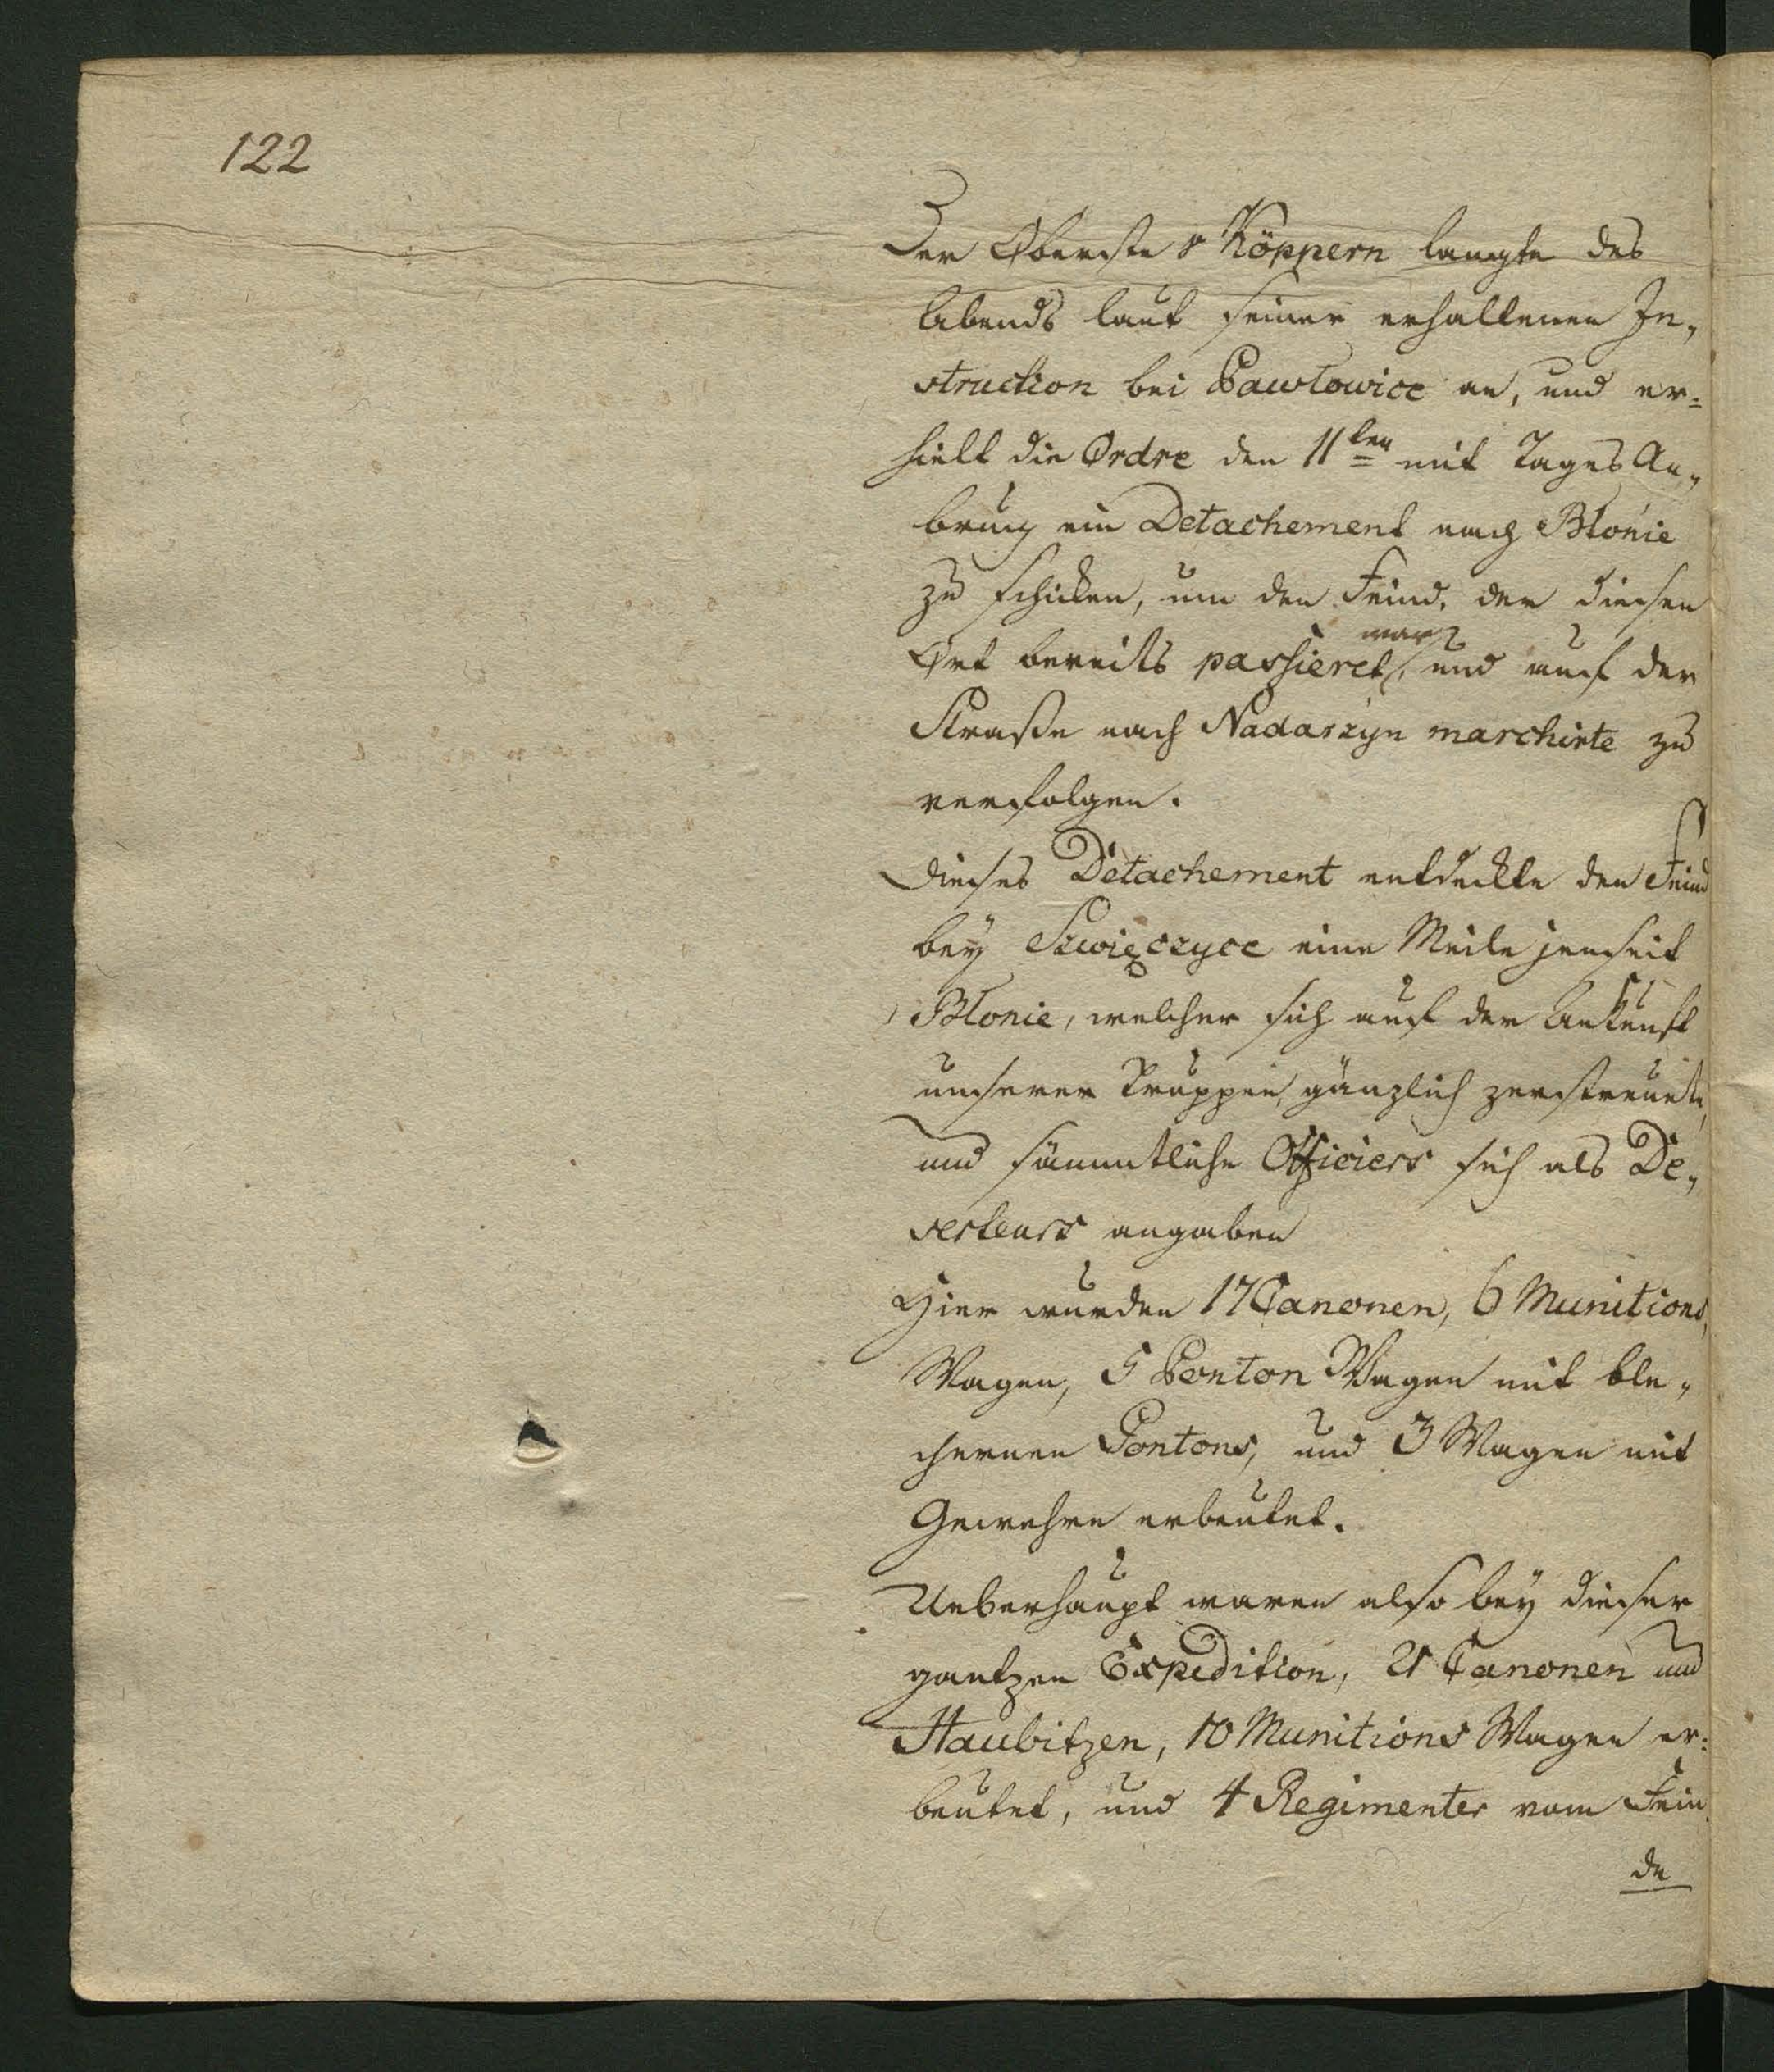 122
Der Oberste v Köppern langte des
Abends laut seiner erhaltenen In„
struction bei Pawłowice an, und er=
hielt die Ordre den 11ten mit Tages An„
bruch ein Detachement nach Błonie
zu schicken, um den Feind, der diesen
war
Ort bereits passieret, und auf der
Straße nach Nadarzyn marchirte zu
verfolgen.
Dieses Detachement entdeckte den Feind
bey Szwięczyce eine Meile jenseit
Błonie, welcher sich auf der Ankunft
unserer Truppen, gänzlich zerstreuete,
und sämmtliche Officiers sich als De„
serteurs angaben
Hier wurden 17 Canonen, 6 Munitions,
Wagen, 5 Ponton Wagen mit ble„
chernen Pontons, und 3 Wagen mit
Gewehre erbeutet.
Ueberhaupt waren also bey dieser
gantzen Expedition, 21 Canonen und
Haubitzen, 10 Munitions Wagen er=
beutet, und 4 Regimenter vom Fein
de